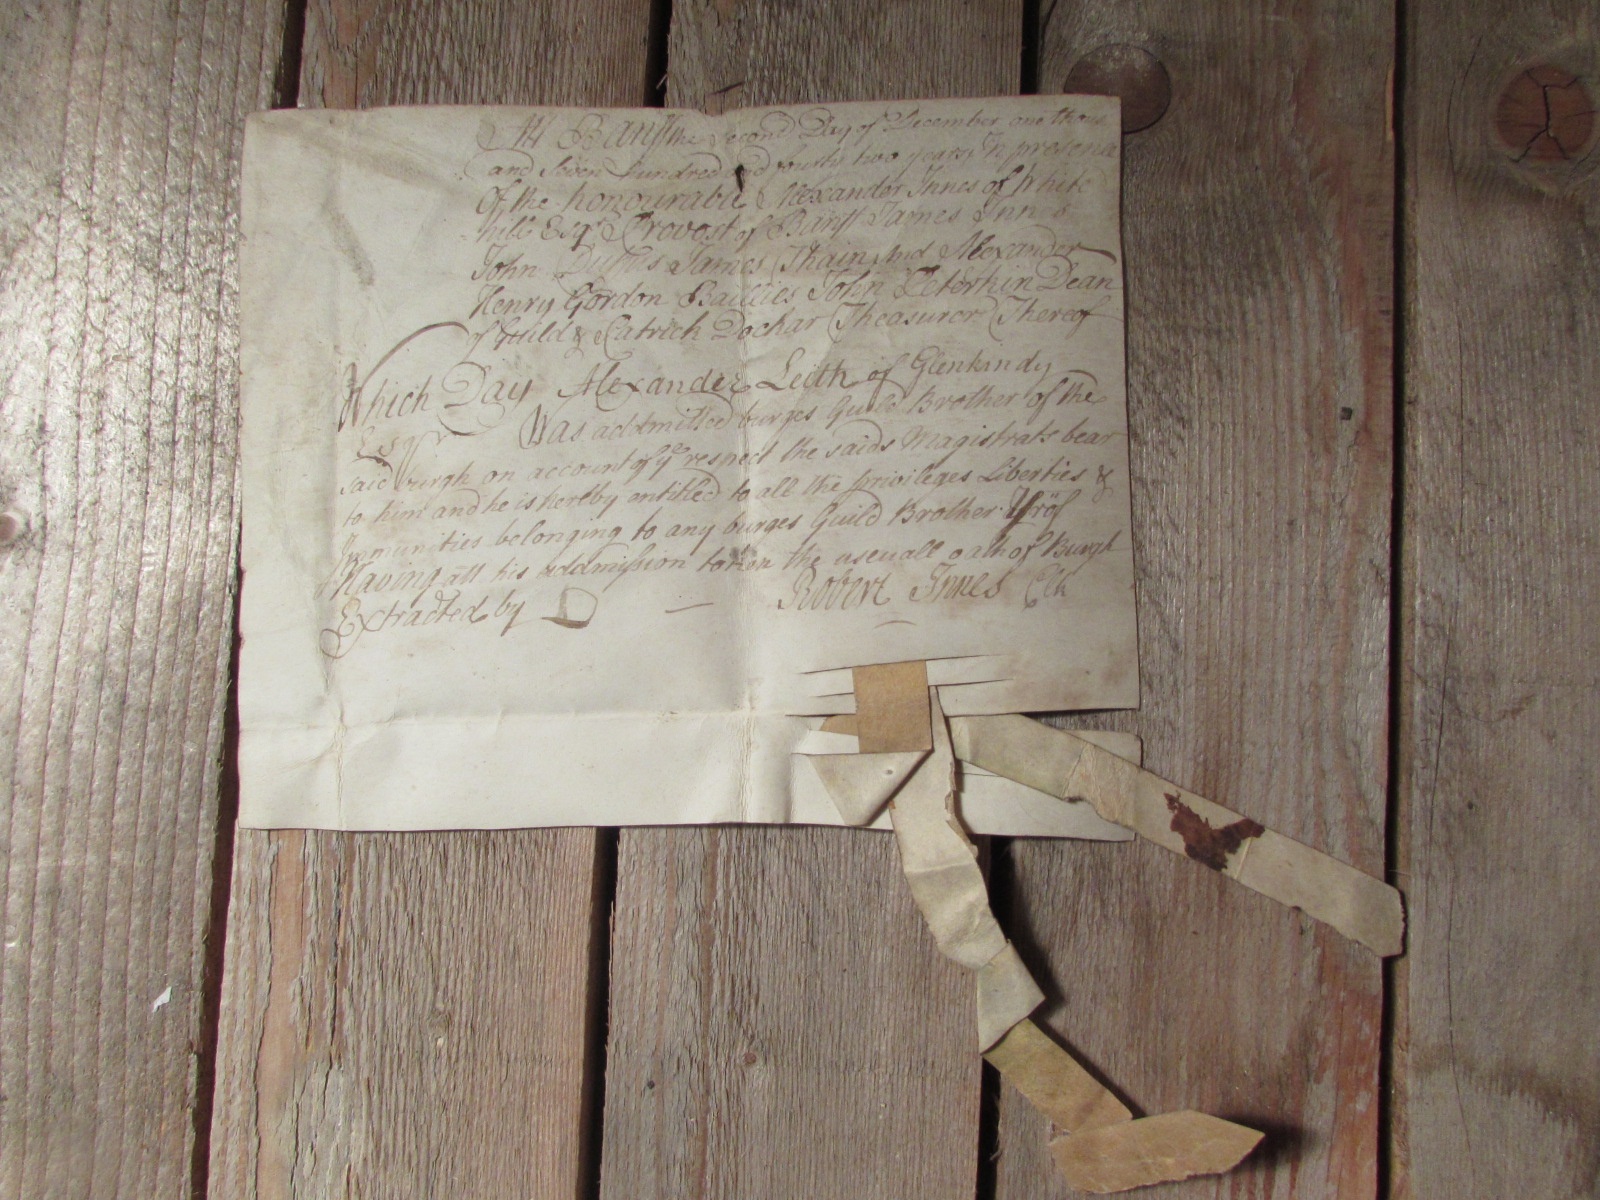 Att Banff the second Day of December one thous
and seven hundred and fourty two years, In presence
Of the honourable Alexander Innes of White
hill Esqr Provost of Banff James Innes
John Duffus James Thain And Alexander
Henry Gordon Baillies John Peterkin Dean
of Guild & Patrick Dockar Theasurer Thereof
Which Day Alexander Leith of Glenkindy
Esqr Was addmitted burges Guild Brother of the
said burgh on account of ye respect the saids Magistrats bear
to him and he is hereby entitled to all the privileges Liberties &
Immunities belonging to any burges Guild Brother
Having att his addmission taken the useuall oath of Burgh
Extracted by Robert Innes Clk